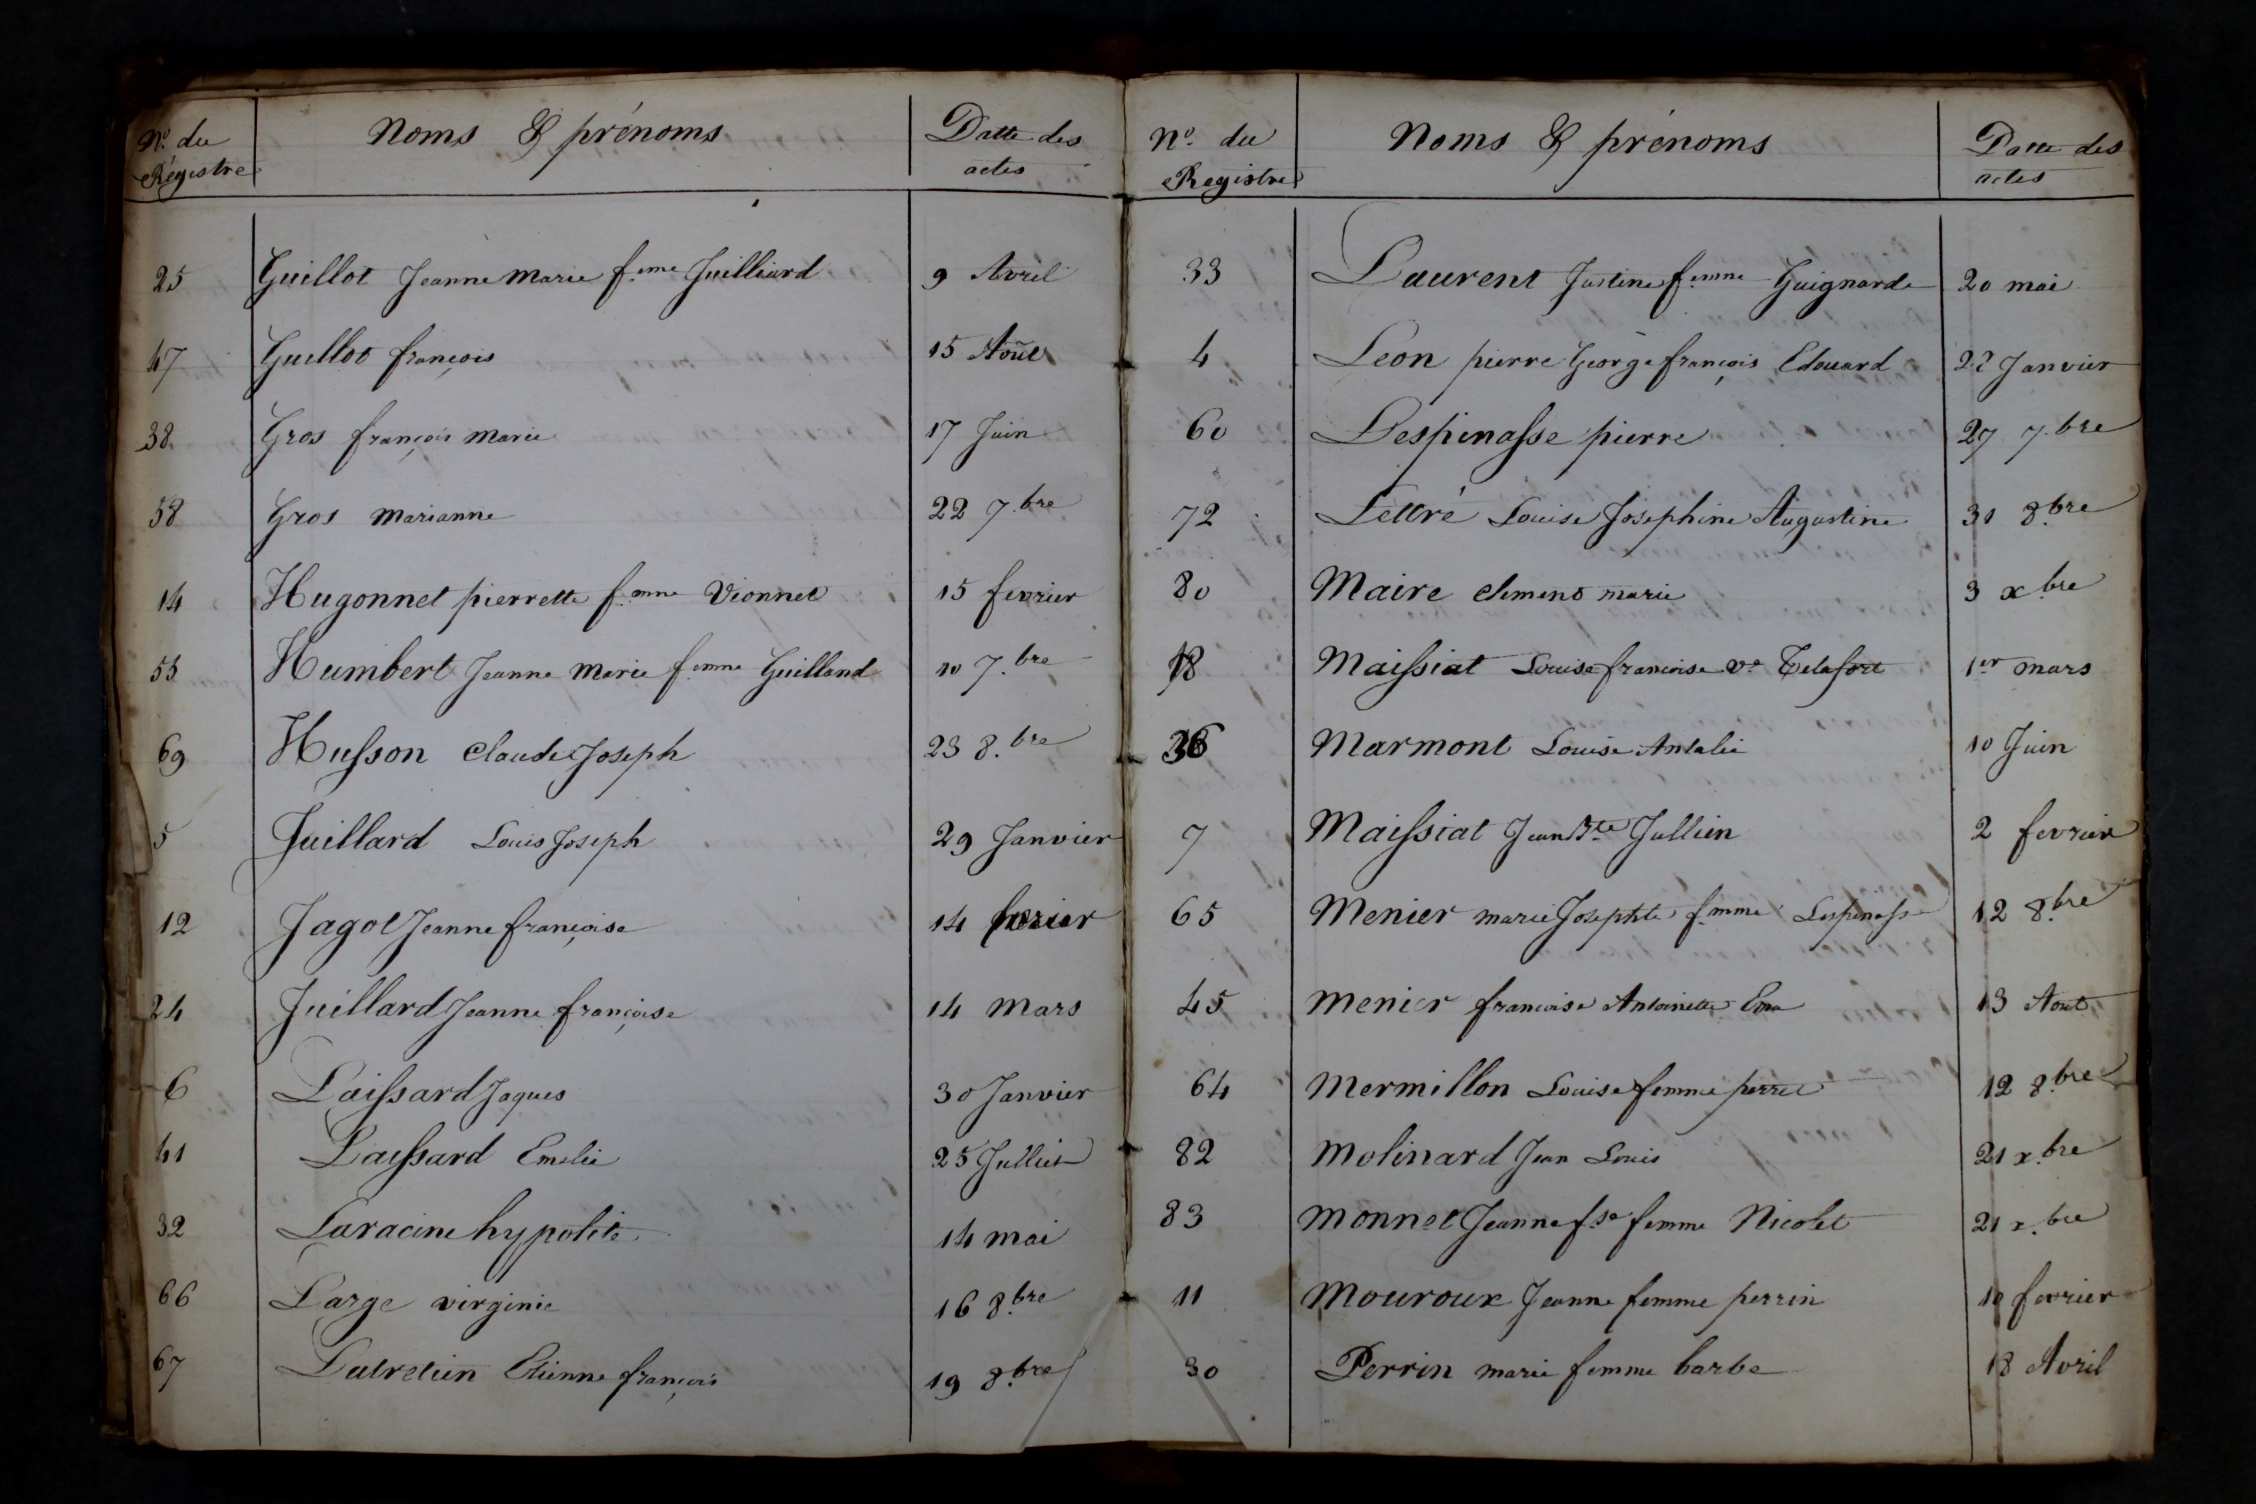 N.º du Régistre
Noms & prénoms
Datte des actes
25 Guillot Jeanne Marie f.eme Juilliard 9 Avril
47 Guillot françois 15 Août
38 Gros françois Marie 17 Juin
58 Gros Marianne 22 7.bre
14 Hugonnet pierrette f.emme Vionnet 15 fevrier
55 Humbert Jeanne Marie f.emme Guilland 10 7.bre
69 Husson Claude Joseph 23 8.bre
5 Juillard Louis Joseph 29 Janvier
12 Jagot Jeanne françoise 14 fevrier
24 Juillard Jeanne françoise 14 Mars
6 Laissard Jaques 30 Janvier
41 Laissard Emelie 25 Julliet
32 Laracine hypolite 14 mai
66 Large virginie 16 8.bre
67 Latretien Etienne françois 19 8.bre
Nº. du Registre
Noms & prénoms
Datte des actes
33 Laurent Justine f.emme Guignard 20 mai
4 Léon pierre George françois Edouard 22 Janvier
60 Lespinasse pierre 27 7.bre
72 Lettré Louise Josephine Augustine 31 8.bre
80 Maire clement marie 3 x.bre
18 Maissiat Louise francoise v.e 1.er mars
36 Marmont Louise 10 Juin
7 Maissiat Jean B.te Jullien 2 fevrier
65 Menier marie Josephte f.emme Lespinasse 12 8.bre
45 Menier francoise Antoinette 13 Aout
64 Mermillon Louise femme perret 12 8.bre
82 Molinard Jean Louis 21 x.bre
83 Monnet Jeanne f.se femme Nicolet 21 x.bre
11 Mouroux Jeanne femme perrin 10 fevrier
30 Perrin marie femme barbe 18 Avril